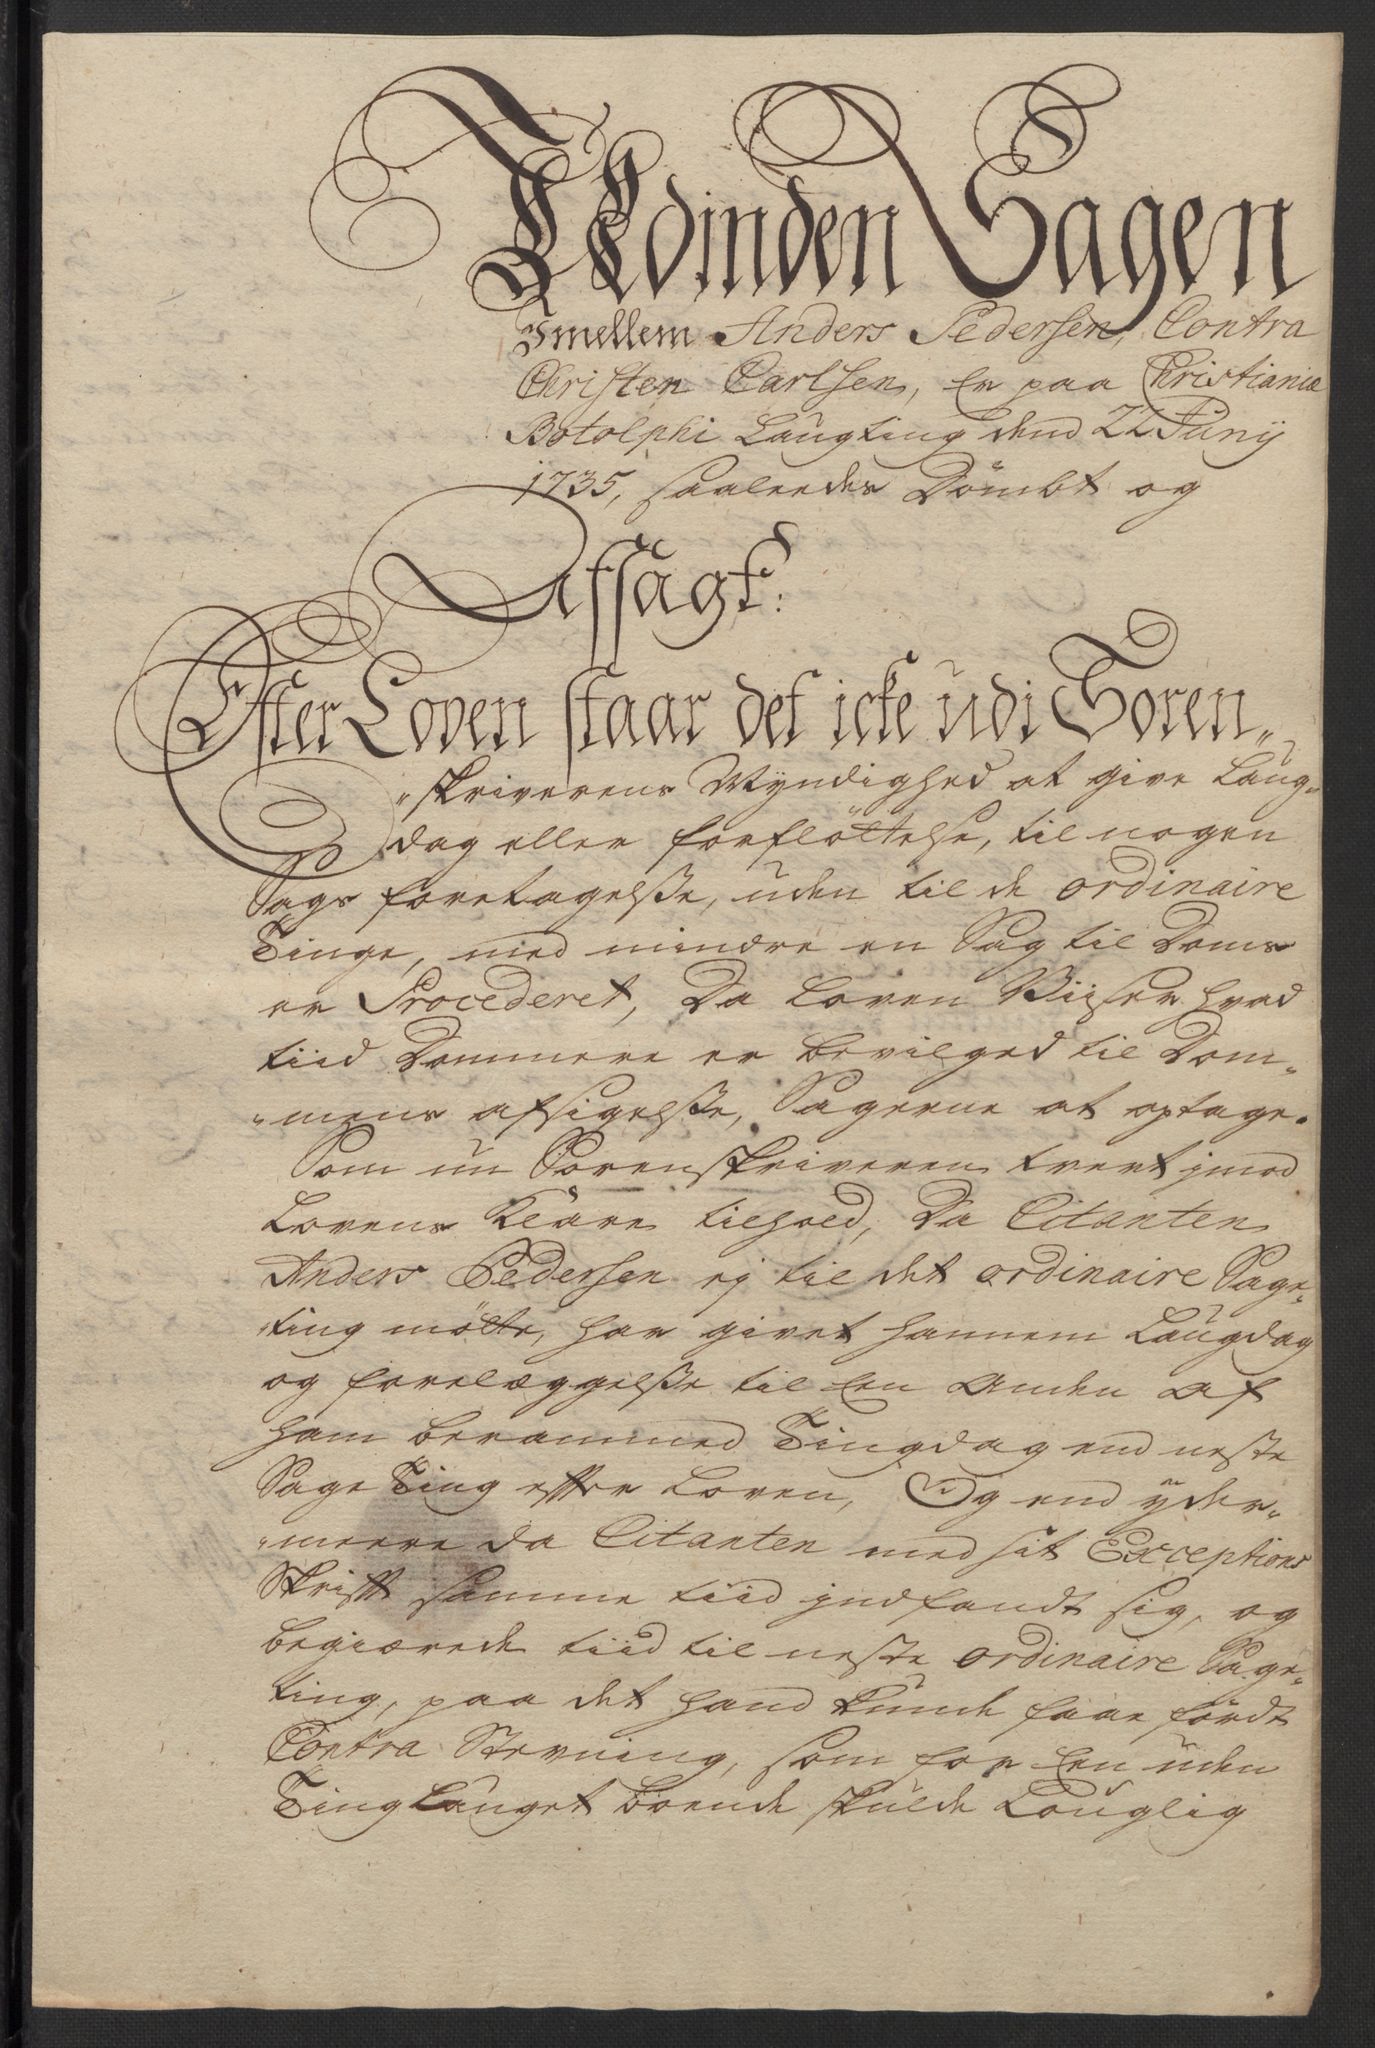 UdInden Sagen
Jmellem Anders Pedersen, Contra
Christen Carlsen, er paa Christianiæ
Botolphi Laugting dend 22 Junij
1735, saaleedes Dömbt og
Afsagt:
Efter Loven staar det icke udi Soren„
„skriverens Myndighed at give Laug„
dag eller forfløttelse, til nogen
Sags foretagelsse, uden til de ordinaire
Tinge, med mindre en Sag til Doms
er Procederet, Da Loven Viiser hvad
tiid Dommere er bevilged til Dom„
„mens afsigelsse, Sagerne at optage.
Som nu Sorenskriveren tvert jmod
Lovens Klare tilhold, Da Citanten
Anders Pedersen ej til det ordinaire Sage„
„ting mötte, har givet hannem Laugdag
og forelæggelsse til Een Anden Af
ham berammed Tingdag end neste
Sage Ting efter Loven, Og end yder„
„meere da Citanten med sit Exceptions
Skrift samme tiid jndfandt sig, og
begiærede tiid til neste ordinaire Sage„
ting, paa det hand kunde faae fördt
Contra Stevning, som for Een uden
Ting Lauget boende skulde Lauglig